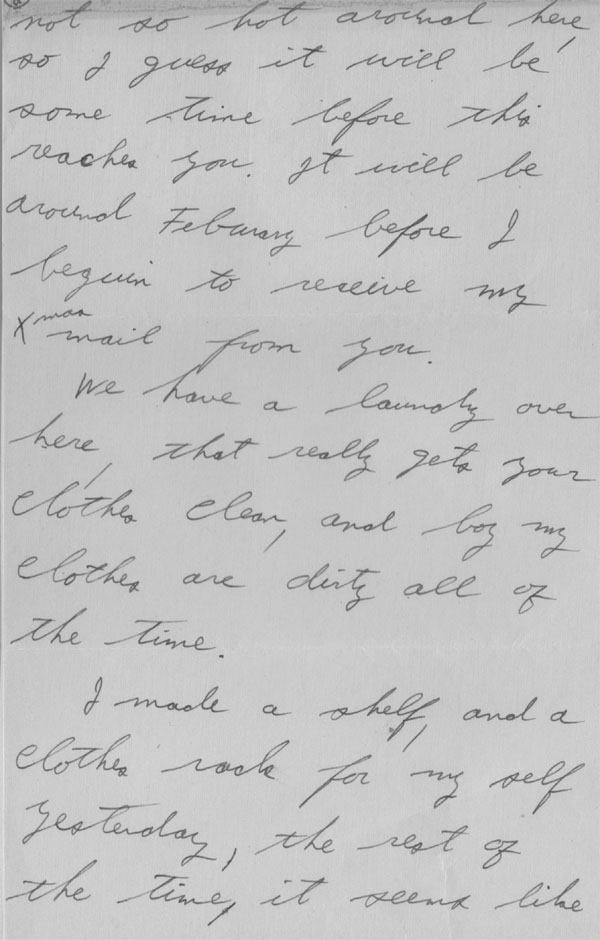 not so hot around here,
so I guess it will be
some time before this
reaches you. It will be
around Feburary before I
beguin to receive my
Xmas mail from you.
We have a laundry over
here, that really gets your
clothes clean, and boy my
clothes are dirty all of
the time.
I made a shelf, and a
clothes rack for my self
yesterday, the rest of
the time, it seems like